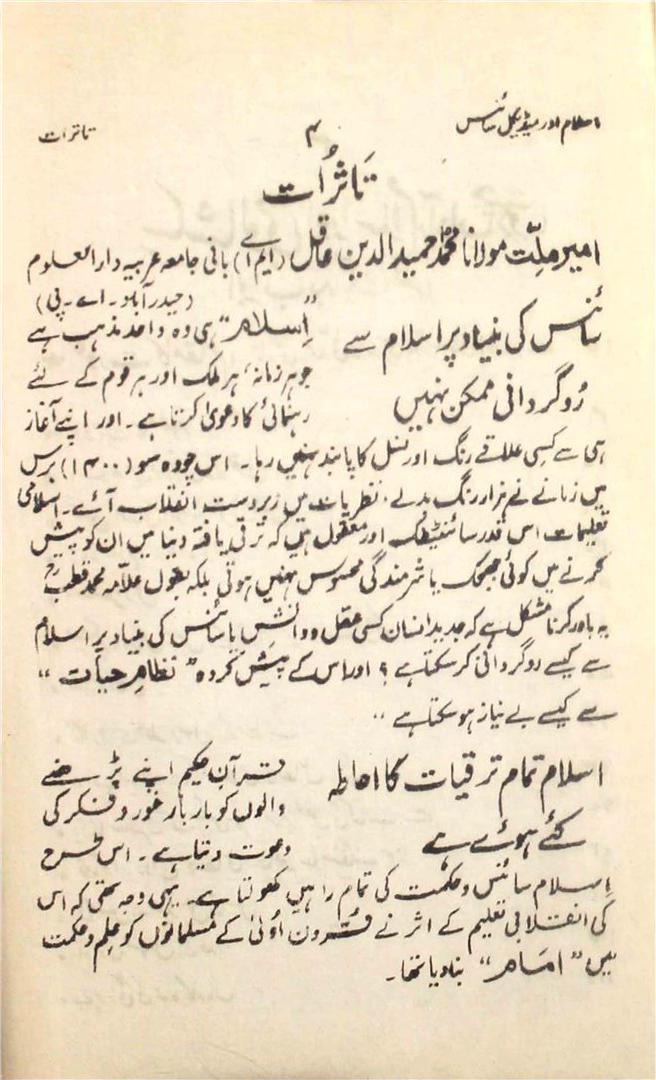 اسلام اور میڈیکل سائنس
۴
تاثرات
تَاثرُات
امیر ملِّت مولانا محمد حمید الدین عاقل (ایم اے) بانی جامعہ عربیہ دار العلوم
(حیدرآباد۔ اے۔ پی)
سائنس کی بنیاد پر اسلام سے
رُوگردانی ممکن نہیں
"اِسلام" ہی وہ واحد مذہب ہے
جو ہر زمانہ، ہر ملک اور ہر قوم کے لئے
رہنمائی کا دعویٰ کرتا ہے۔ اور اپنے آغاز
ہی سے کسی علاقے رنگ اور نسل کا پابند نہیں رہا۔ اس چودہ سو (۱۴۰۰) برس
میں زمانے نے ہزار رنگ بدلے، نظریات میں زبردست انقلاب آئے۔ اسلامی
تعلیمات اس قدر سائنٹیفک اور معقول ہیں کہ ترقی یافتہ دنیا میں ان کو پیش
کرنے میں کوئی جھجک یا شرمندگی محسوس نہیں ہوتی بلکہ بقول علامہ محمد قطبؒ
یہ باور کرنا مشکل ہے کہ جدید انسان کسی عقل و دانش یا سائنس کی بنیاد پر اسلام
سے کیسے روگردانی کر سکتا ہے؟ اور اس کے پیش کردہ "نظامِ حیات"
سے کیسے بے نیاز ہو سکتا ہے"
اسلام تمام ترقیات کا احاطہ
کئے ہوئے ہے
قرآن حکیم اپنے پڑھنے
والوں کو بار بار غور و فکر کی
دعوت دیتا ہے۔ اس طرح
اِسلام سائنس و حکمت کی تمام راہیں کھولتا ہے۔ یہی وجہ تھی کہ اس
کی انقلابی تعلیم کے اثر نے قرون اُولیٰ کے مسلمانوں کو علم و حکمت
میں "امَام" بنا دیا تھا۔